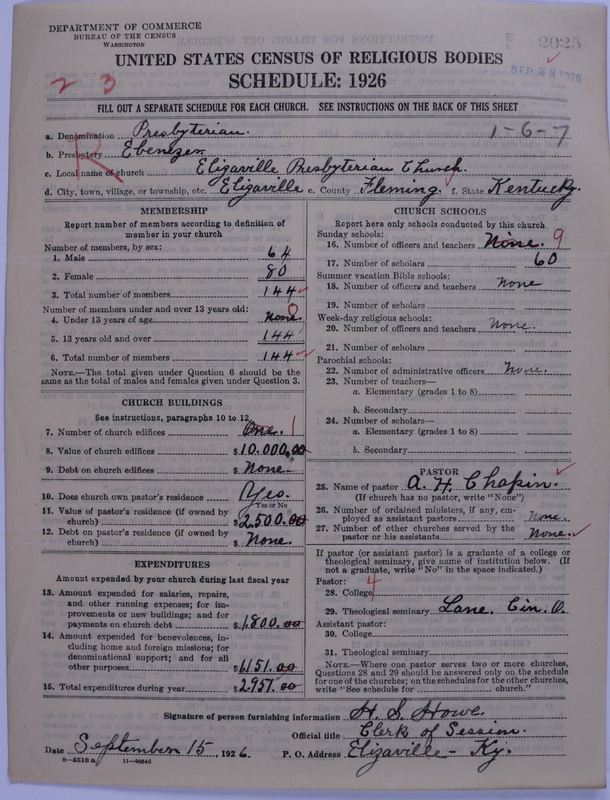 DEPARTMENT OF COMMERCE
BUREAU OF THE CENSUS
WASHINGTON
2025
UNITED STATES CENSUS OF RELIGIOUS BODIES
SEP 28 1926
SCHEDULE: 1926
2 3
FILL OUT A SEPARATE SCHEDULE FOR EACH CHURCH. SEE INSTRUCTIONS ON THE BACK OF THIS SHEET
a. Denomination Presbyterian. 1-6-7
b. Presbytery Ebenezer
R
c. Local name of church Elizaville Presbyterian Church.
d. City, town, village, or township, etc. Elizaville e. County Fleming. f. State Kentucky.
MEMBERSHIP
Report number of members according to definition of
member in your church
Number of members, by sex:
1. Male 64
2. Female 80
3. Total number of members 144
Number of members under and over 13 years old:
4. Under 13 years of age none 0
5. 13 years old and over 144
6. Total number of members 144
NOTE.—The total given under Question 6 should be
same as the total of males and females given under Question 3.
CHURCH BUILDINGS
See instructions, paragraphs 10 to 12
7. Number of church edifices One. 1
8. Value of church edifices $10.000.00
9. Debt on church edifices $ None.
10. Does church own pastor's residence Yes.
Yes or No
11. Value of pastor's residence (if owned by
church) $2,500.00
12. Debt on pastor's residence (if owned by
church) $ None.
EXPENDITURES
Amount expended by your church during last fiscal year
13. Amount expended for salaries, repairs,
and other running expenses; for im-
provements or new buildings; and for
payments on church debt $1800.00
14. Amount expended for benevolences, in-
cluding home and foreign missions; for
denominational support; and for all
other purposes $1151.00
15. Total expenditures during year $2951.00
CHURCH SCHOOLS
Report here only schools conducted by this church
Sunday schools:
16. Number of officers and teachers Nine. 9
17. Number of scholars 60
Summer vacation Bible schools:
18. Number of officers and teachers none
19. Number of scholars
Week-day religious schools:
20. Number of officers and teachers None.
21. Number of scholars
Parochial schools:
22. Number of administrative officers None.
23. Number of teachers—
a. Elementary (grades 1 to 8)
b. Secondary
24. Number of scholars—
a. Elementary (grades 1 to 8)
b. Secondary
PASTOR
25. Name of pastor A. H. Chapin.
(If church has no pastor, write "None")
26. Number of ordained ministers, if any, em-
ployed as assistant pastors None.
27. Number of other churches served by the
pastor or his assistants None.
If pastor (or assistant pastor) is a graduate of a college or
theological seminary, give name of institution below. (If
not a graduate, write "No" in the space indicated.)
Pastor:
28. College 4
29. Theological seminary Lane. Cin. O.
Assistant pastor:
30. College
31. Theological seminary
NOTE.—Where one pastor serves two or more churches,
Questions 28 and 29 should be answered only on the schedule
for one of the churches; on the schedules for the other churches,
write "See schedule for church."
Signature of person furnishing information H. S. Howe.
Official title Clerk of Session.
Date September 15 1926. P. O. Address Elizaville - Ky.
8-5518a 11-9064d